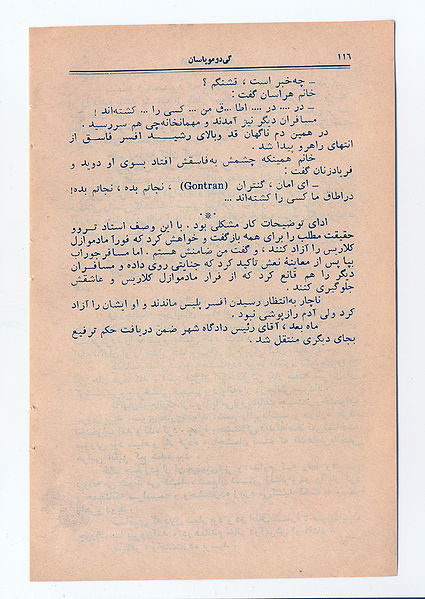 ۱۱۶
گی‌دوموپاسان
ـ چه‌خبر است ، قشنگم ؟
خانم هراسان گفت :
ـ در .... در .... اطا ... ق من ... کسی را ... کشته‌اند !
مسافران دیگر نیز آمدند و مهمانخانه‌چی هم سررسید .
در همین دم ناگهان قد وبالای رشیـــد افسر فاسق از
انتهای راهرو پیدا شد .
خانم همینکه چشمش به‌فاسقش افتاد بسوی او دوید و
فریادزنان گفت :
ـ ای امان ، گنتران (Gontran) ، نجاتم بده ، نجاتم بده!
دراطاق ما کسی را کشته‌اند ...
*
ادای توضیحات کار مشکلی بود . با این وصف استاد تـروو
حقیقت مطلب را برای همه بازگفت و خواهش کرد که فوراً مادموازل
کلاریس را آزاد کنند ، و گفت من ضامنش هستم . اما مسافرجوراب
بپا پس از معاینهٔ نعش تأکید کرد که جنایتی روی داده و مسافـران
دیگر را هم قانع کرد که از فرار مادموازل کلاریس و عاشقش
جلوگیری کنند .
ناچار به‌انتظار رسیدن افسر پلیس ماندند و او ایشان را آزاد
کرد ولی آدم رازپوشی نبود .
ماه بعد ، آقای رئیس دادگاه شهر ضمن دریافت حکم ترفیع
بجای دیگری منتقل شد .